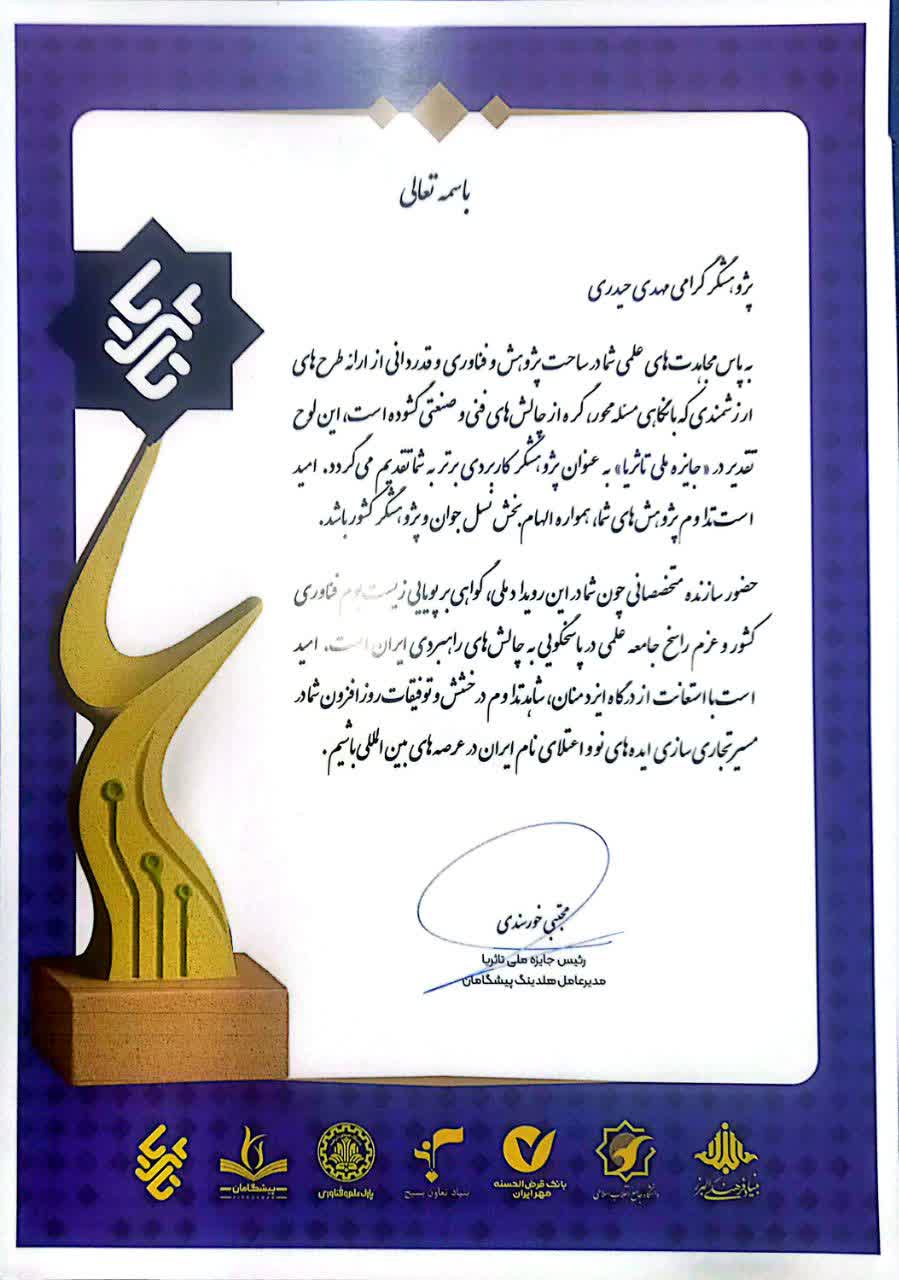 باسمه تعالی
پژوهشگر گرامی مهدی حیدری
تاثریا
به پاس مجاهدت‌های علمی شما در ساحت پژوهش و فناوری و قدردانی از ارائه طرح‌های
ارزشمندی که با نگاهی مسئله محور، گره از چالش‌های فنی و صنعتی گشوده است، این لوح
تقدیر در «جایزه ملی تاثریا» به عنوان پژوهشگر کاربردی برتر به شما تقدیم می‌گردد. امید
است تداوم پژوهش‌های شما، همواره الهام بخش نسل جوان و پژوهشگر کشور باشد.
حضور سازنده متخصصانی چون شما در این رویداد ملی، گواهی بر پویایی زیست بوم فناوری
کشور و عزم راسخ جامعه علمی در پاسخگویی به چالش‌های راهبردی ایران است. امید
است با استعانت از درگاه ایزد منان، شاهد تداوم درخشش و توفیقات روزافزون شما در
مسیر تجاری سازی ایده‌های نو و اعتلای نام ایران در عرصه‌های بین المللی باشیم.
مجتبی خورسندی
رئیس جایزه ملی تاثریا
مدیرعامل هلدینگ پیشگامان
بنیاد فرهنگی البرز
دانشگاه جامع انقلاب اسلامی
بانک قرض‌الحسنه
مهر ایران
بنیاد تعاون بسیج
پارک علم و فناوری
پیشگامان
تاثریا